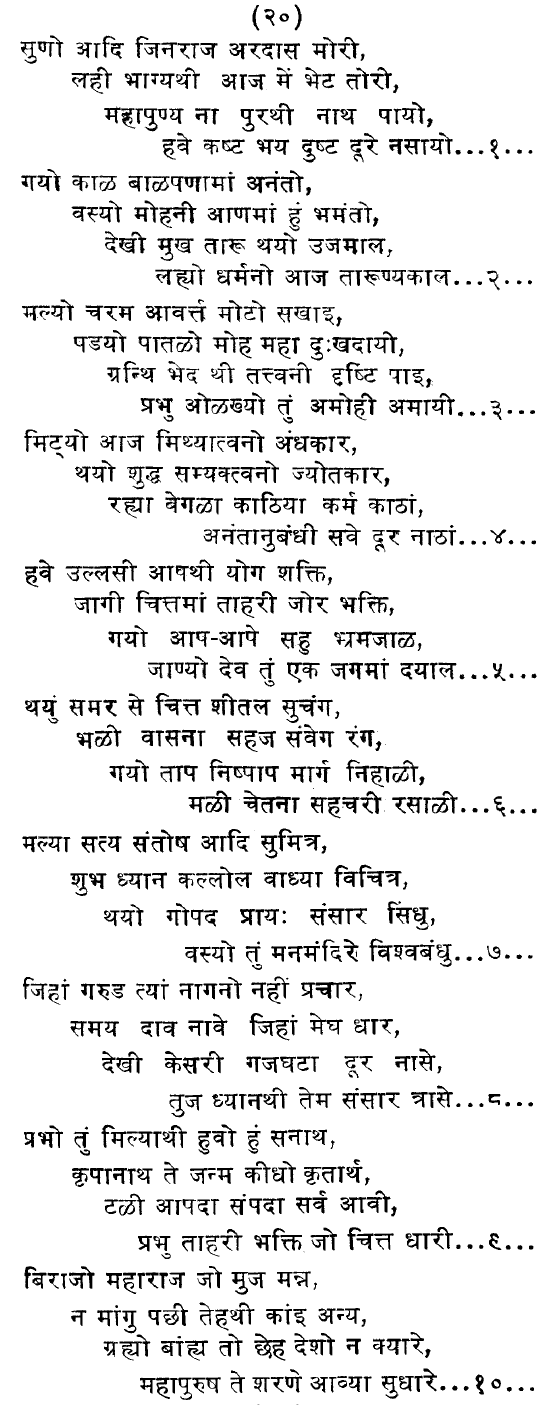 (२०)
सुणो आदि जिनराज अरदास मोरी,
लही भाग्यथी आज में भेट तोरी,
महापुण्य ना पुरथी नाथ पायो,
हवे कष्ट भय दुष्ट दूरे नसायो...१...
गयो काळ बाळपणामां अनंतो,
वस्यो मोहनी आणमां हुं भमंतो,
देखी मुख तारू थयो उजमाल,
लह्यो धर्मनो आज तारूण्यकाल...२...
मल्यो चरम आवर्त्त मोटो सखाइ,
पडयो पातळो मोह महा दुःखदायी,
ग्रन्थि भेद थी तत्त्वनी दृष्टि पाइ,
प्रभु ओळख्यो तुं अमोही अमायी...३...
मिट्यो आज मिथ्यात्वनो अंधकार,
थयो शुद्ध सम्यक्त्वनो ज्योतकार,
रह्या वेगळा काठिया कर्म काठां,
अनंतानुबंधी सवे दूर नाठां...४...
हवे उल्लसी आपथी योग शक्ति,
जागी चित्तमां ताहरी जोर भक्ति,
गयो आप-आपे सहु भ्रमजाळ,
जाण्यो देव तुं एक जगमां दयाल...५...
थयुं समर से चित्त शीतल सुचंग,
भळी वासना सहज संवेग रंग,
गयो ताप निष्पाप मार्ग निहाळी,
मळी चेतना सहचरी रसाळी...६...
मल्या सत्य संतोष आदि सुमित्र,
शुभ ध्यान कल्लोल वाध्या विचित्र,
थयो गोपद प्रायः संसार सिंधु,
वस्यो तुं मनमंदिरे विश्वबंधु...७...
जिहां गरुड त्यां नागनो नहीं प्रचार,
समय दाव नावे जिहां मेघ धार,
देखी केसरी गजघटा दूर नासे,
तुज ध्यानथी तेम संसार त्रासे...८...
प्रभो तुं मिल्याथी हुवो हुं सनाथ,
कृपानाथ ते जन्म कीधो कृतार्थ,
टळी आपदा संपदा सर्व आवी,
प्रभु ताहरी भक्ति जो चित्त धारी...९...
बिराजो महाराज जो मुज मन्न,
न मांगु पछी तेहथी कांइ अन्य,
ग्रह्यो बांह्य तो छेह देशो न क्यारे,
महापुरुष ते शरणे आव्या सुधारे...१०...